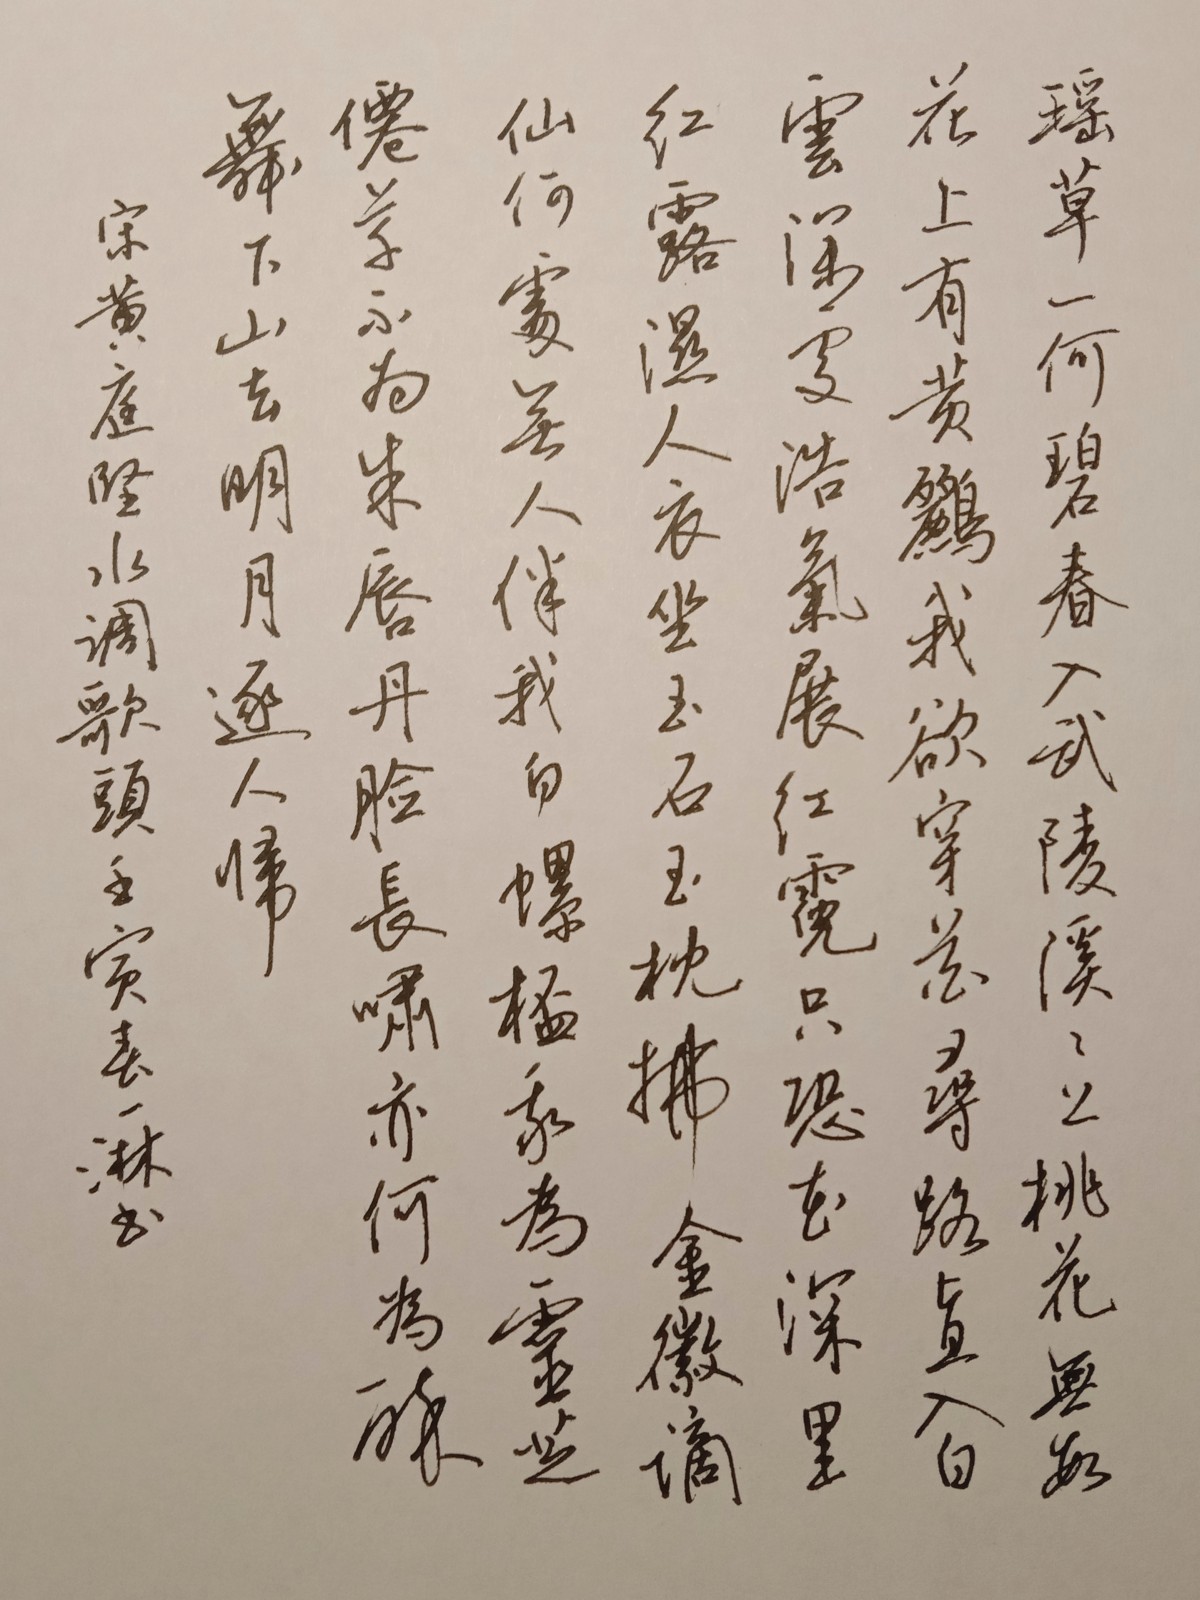 瑶草一何碧春入武陵溪〻上桃花無数
花上有黄鸝我欲穿花尋路直入白
雲深處浩氣展红霓只恐花深里
红露濕人衣坐玉石玉枕拂金徽謫
仙何處無人伴我白螺杯我為靈芝
僊草不为朱唇丹脸長嘯亦何為醉
舞下山去明月逐人歸
宋黄庭堅水调歌頭壬寅春一淋书